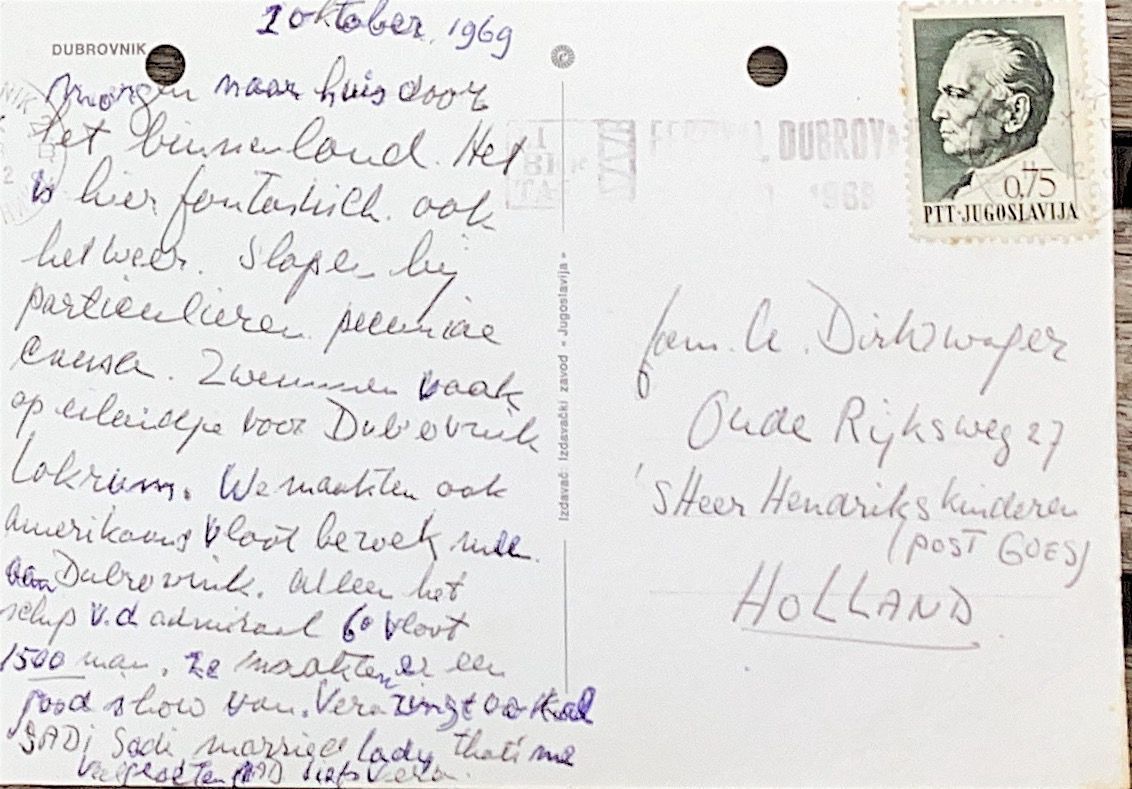 1 oktober, 1969
DUBROVNIK
morgen naar huis door
het binnenland. Het
is hier fantastisch. ook
het weer. Slapen bij
particulieren pecuniae
causa. Zwemmen vaak
op eilandje voor Dubrovnik
Lokrum. We maakten ook
amerikaans vloot bezoek mee.
aan Dubrovnik. alleen het
schip v.d admiraal 6e vloot
1500 man. Ze maakten er een
good show van. Vera zingt ook al
SADI Sadi married lady that's me
Vera.
Izdavač: Izdavački zavod « Jugoslavija »
DUBROV
1969
0,75
PTT-JUGOSLAVIJA
fam. A. Dirkzwager
Oude Rijksweg 27
's Heer Hendrikskinderen
(POST GOES)
HOLLAND